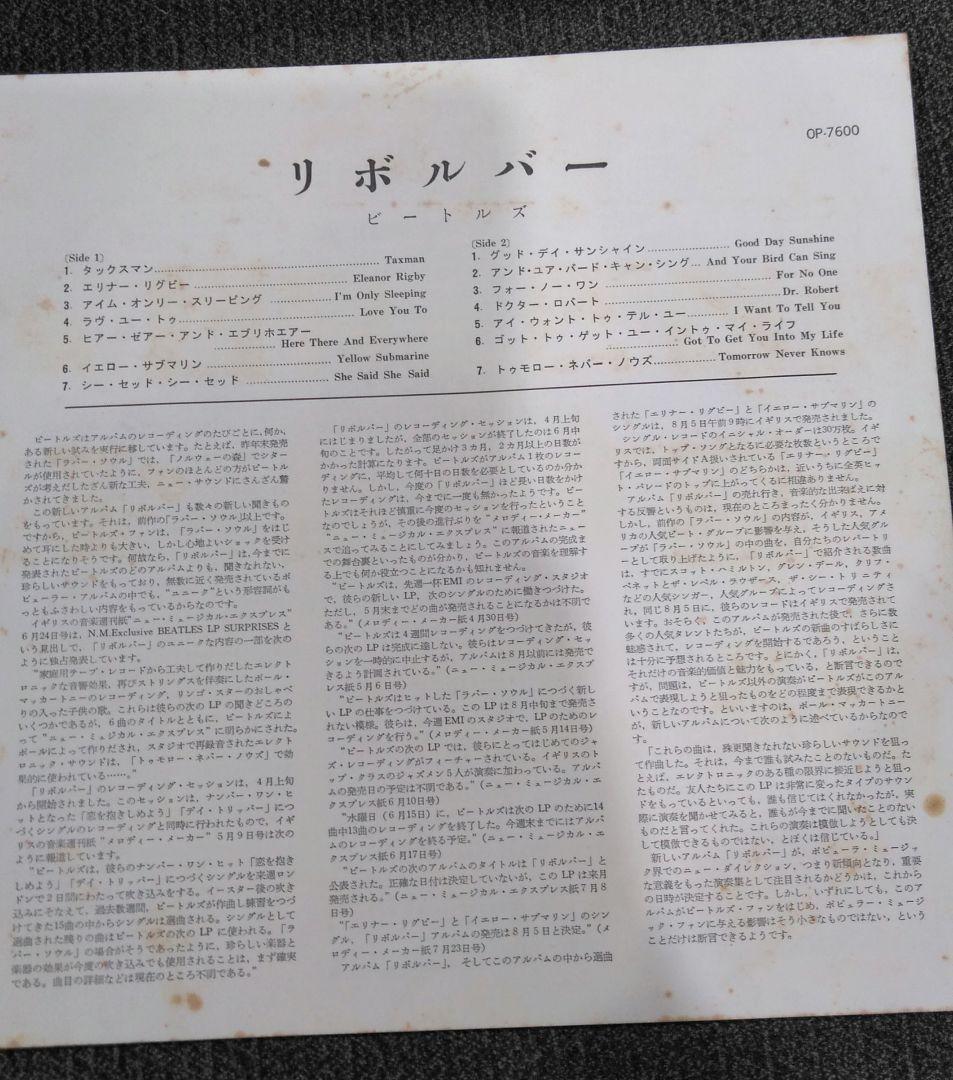 OP-7600
リボルバー
ビートルズ
〔Side 1〕
1. タックスマン Taxman
2. エリナー・リグビー Eleanor Rigby
3. アイム・オンリー・スリーピング I'm Only Sleeping
4. ラヴ・ユー・トゥ Love You To
5. ヒアー・ゼアー・アンド・エブリホエアー
Here There And Everywhere
6. イエロー・サブマリン Yellow Submarine
7. シー・セッド・シー・セッド She Said She Said
〔Side 2〕
1. グッド・デイ・サンシャイン Good Day Sunshine
2. アンド・ユア・バード・キャン・シング And Your Bird Can Sing
3. フォー・ノー・ワン For No One
4. ドクター・ロバート Dr. Robert
5. アイ・ウォント・トゥ・テル・ユー I Want To Tell You
6. ゴット・トゥ・ゲット・ユー・イントゥ・マイ・ライフ
Got To Get You Into My Life
7. トゥモロー・ネバー・ノウズ Tomorrow Never Knows
ビートルズはアルバムのレコーディングのたびごとに，何か，
ある新しい試みを実行に移しています。たとえば，昨年末発売
された「ラバー・ソウル」では，「ノルウェーの森」でシター
ルが使用されていたように，ファンのほとんどの方がビートル
ズが考えだしたざん新な工夫，ニュー・サウンドにさんざん驚
かされてきました。
この新しいアルバム「リボルバー」も数々の新しい聞きもの
をもっています。それは，前作の「ラバー・ソウル」以上です。
ですから，ビートルズ・ファンは，「ラバー・ソウル」をはじ
めて耳にした時よりも大きい，しかし心地よいショックを受け
ることになりそうです。何故なら，「リボルバー」は，今までに
発表されたビートルズのどのアルバムよりも，聞きなれない，
珍らしいサウンドをもっており，無数に近く発売されているポ
ピューラー・アルバムの中でも，"ユニーク"という形容詞がも
っともふさわしい内容をもっているからなのです。
イギリスの音楽週刊紙"ニュー・ミュージカル・エクスプレス"
6月24日号は，N.M.Exclusive BEATLES LP SURPRISES と
いう見出しで，「リボルバー」のユニークな内容の一部を次の
ように独占発表しています。
"家庭用テープ・レコードから工夫して作りだしたエレクト
ロニックな音響効果，再びストリングスを伴奏にしたポール・
マッカートニーのレコーディング，リンゴ・スターのおしゃべ
りの入った子供の歌。これらは彼らの次の LP の聞きどころの
いくつかであるが，6曲のタイトルとともに，ビートルズによ
って"ニュー・ミュージカル・エクスプレス"に明らかにされた。
ポールによって作りだされ，スタジオで再録音されたエレクト
ロニック・サウンドは，「トゥモロー・ネバー・ノウズ」で効
果的に使われている……。"
「リボルバー」のレコーディング・セッションは，4月上旬
から開始されました。このセッションは，ナンバー・ワン・ヒ
ットとなった「恋を抱きしめよう」「デイ・トリッパー」につ
づくシングルのレコーディングと同時に行われたもので，イギ
リスの音楽週刊紙"メロディー・メーカー"5月9日号は次の
ように報道しています。
"ビートルズは，彼らのナンバー・ワン・ヒット「恋を抱き
しめよう」「デイ・トリッパー」につづくシングルを来週ロン
ドンで2日間にわたって吹き込みをする。イースター後の吹き
込みにそなえて，過去数週間，ビートルズが作曲し練習をつづ
けてきた15曲の中からシングルは選曲される。シングルとして
選曲された残りの曲はビートルズの次の LP に使われる。「ラ
バー・ソウル」の場合がそうであったように，珍らしい楽器と
楽器の効果が今度の吹き込みでも使用されることは，まず確実
である。曲目の詳細などは現在のところ不明である。"
「リボルバー」のレコーディング・セッションは，4月上旬
にはじまりましたが，全部のセッションが終了したのは6月中
旬のことです。したがって足かけ3カ月，2カ月以上の日数が
かかった計算になります。ビートルズがアルバム1枚のレコー
ディングに，平均して何十日の日数を必要としているのか分か
りません。しかし，今度の「リボルバー」ほど長い日数をかけ
たレコーディングは，今までに一度も無かったようです。ビー
トルズはそれほど慎重に今度のセッションを行ったということ
なのでしょうが，その後の進行ぶりを"メロディー・メーカー"
"ニュー・ミュージカル・エクスプレス"に報道されたニュー
スで追ってみることにしてみましょう。このアルバムの完成ま
での舞台裏といったものが分かり，ビートルズの音楽を理解す
る上でも何か役立つことになるかも知れません。
"ビートルズは，先週一杯EMIのレコーディング・スタジオ
で，彼らの新しい LP，次のシングルのために働きつづけた。
ただし，5月末までどの曲が発売されることになるかは不明で
ある。"（メロディー・メーカー紙4月30日号）
"ビートルズは4週間レコーディングをつづけてきたが，彼
らの次の LP は完成に達しない。彼らはレコーディング・セッ
ションを一時的に中止するが，アルバムは8月以前には発売で
きるよう計画されている。"（ニュー・ミュージカル・エクスプ
レス紙5月6日号）
"ビートルズはヒットした「ラバー・ソウル」につづく新し
い LP の仕事をつづけている。この LP は8月中旬まで発売さ
れない模様。彼らは，今週EMIのスタジオで，LPのためのレ
コーディングを行う。"（メロディー・メーカー紙5月14日号）
"ビートルズの次の LP では，彼らにとってはじめてのジャ
ズ・レコーディングがフィーチャーされている。イギリスのト
ップ・クラスのジャズメン5人が演奏に加わっている。アルバ
ムの発売日の予定は不明である。"（ニュー・ミュージカル・エ
クスプレス紙6月10日号）
"水曜日（6月15日）に，ビートルズは次の LP のために14
曲中13曲のレコーディングを終了した。今週末までにはアルバ
ムのレコーディングを終る予定。"（ニュー・ミュージカル・エ
クスプレス紙6月17日号）
"ビートルズの次のアルバムのタイトルは「リボルバー」と
公表された。正確な日付は決定していないが，この LP は来月
発売される。"（ニュー・ミュージカル・エクスプレス紙7月8
日号）
"「エリナー・リグビー」と「イエロー・サブマリン」のシン
グル，「リボルバー」アルバムの発売は8月5日と決定。"（メ
ロディー・メーカー紙7月23日号）
アルバム「リボルバー」，そしてこのアルバムの中から選曲
された「エリナー・リグビー」と「イエロー・サブマリン」の
シングルは，8月5日午前9時にイギリスで発売されました。
シングル・レコードのイニシャル・オーダーは30万枚。イギ
リスでは，トップ・ソングとなるに必要な枚数というところで
すから，両面サイドA扱いされている「エリナー・リグビー」
「イエロー・サブマリン」のどちらかは，近いうちに全英ヒッ
ト・パレードのトップに上がってくるに相違ありません。
アルバム「リボルバー」の売れ行き，音楽的な出来ばえに対
する反響というものは，現在のところまったく分かりません。
しかし，前作の「ラバー・ソウル」の内容が，イギリス，アメ
リカの人気ビート・グループに影響を与え，そうした人気グル
ープが「ラバー・ソウル」の中の曲を，自分たちのレパートリ
ーとして取り上げたように，「リボルバー」で紹介される数曲
は，すでにスコット・ハミルトン，グレン・デール，クリフ・
ベネットとザ・レベル・ラウザーズ，ザ・シー・トリニティ
などの人気シンガー，人気グループによってレコーディングさ
れ，同じ8月5日に，彼らのレコードはイギリスで発売されて
います。おそらく，このアルバムが発売された後で，さらに数
多くの人気タレントたちが，ビートルズの新曲のすばらしさに
魅惑されて，レコーディングを開始するであろう，ということ
は十分に予想されるところです。とにかく，「リボルバー」は，
それだけの音楽的価値と魅力をもっている，と断言できるので
すが，問題は，ビートルズ以外の演奏がビートルズがこのアル
バムで表現しようと狙ったものをどの程度まで表現できるかと
いうことなのです。といいますのは，ポール・マッカートニー
が，新しいアルバムについて次のように述べているからなので
す。
「これらの曲は，殊更聞きなれない珍らしいサウンドを狙っ
て作曲した。それは，今まで誰も試みたことのないものだ。た
とえば，エレクトロニックのある種の限界に接近しようと狙っ
たものだ。友人たちにこの LP は非常に変ったタイプのサウン
ドをもっているといっても，誰も信じてはくれなかったが，実
際に演奏を聞かせてみると，誰もが今までに聞いたことのない
ものだと言ってくれた。これらの演奏は模倣しようとしても決
して模倣できるものではない，とぼくは信じている。」
新しいアルバム「リボルバー」が，ポピューラ・ミュージッ
ク界でのニュー・ダイレクション，つまり新傾向となり，重要
な意義をもった演奏集として注目されるかどうかは，これから
の日時が決定することです。しかし，いずれにしても，このア
ルバムがビートルズ・ファンをはじめ，ポピュラー・ミュージ
ック・ファンに与える影響はそう小さなものではない，という
ことだけは断言できるようです。